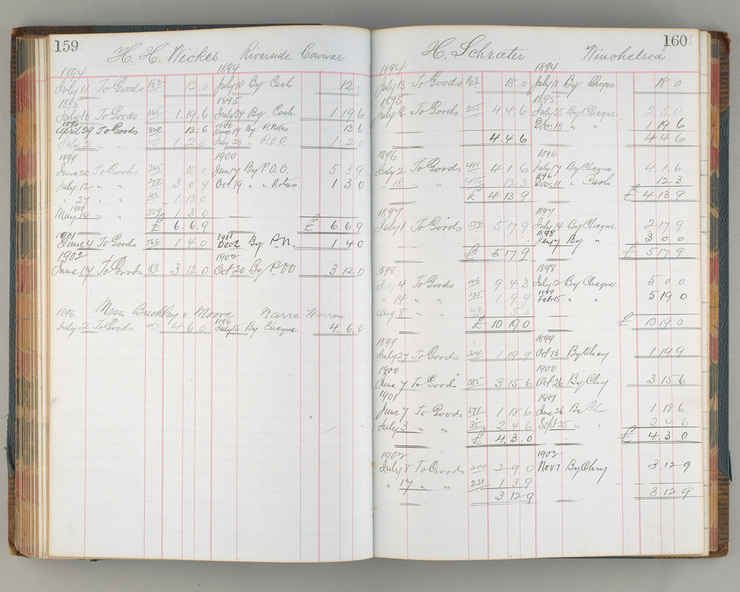 159
H. H. Wickes Riverside
1894 1894
July 11 To Goods 12 0 July 10 By Cash 12
1895 1895
July 16 To Goods 1 19 6 July 29 By Cash 1 19 6
April 29 To Goods 13 6 By P. Notes 13 6
July 2 1 2 0 July 20 " P.O.O. 1 2 0
1899 1900
June 20 To Goods 10 0 Jan 7 By P.O.O. 5 3 9
July 12 " " 3 0 9 Oct 19 " " Notes 1 3 0
" 27 " " 1 13 0
May 14 " " 1 3 0
£ 6 6 9 £ 6 6 9
1901 1901
June 4 To Goods 1 4 0 Dec 2 By P.N. 1 4 0
1902 1902
June 17 To Goods 3 12 0 Oct 20 By P.O.O 3 12 0
Buckley & Moore Warren
1896 1896
July 2 To Goods 4 6 0 July 15 By Cheque 4 6 0
160
H. Schrater Winchelsea
1894 1894
July 13 To Goods 162 18 0 July 11 By Cheque 18 0
1895 1895
July 2 To Goods 255 4 4 6 July 25 By Cheque 2 5 0
Dec 15 " " 1 19 6
4 4 6 4 4 6
1896 1896
July 2 To Goods 411 4 1 6 July 17 By Cheque 4 1 6
" 15 " " 12 3 Dec 11 " 12 3
£ 4 13 9 £ 4 13 9
1897 1897
July 1 To Goods 5 17 9 July 14 By Cheque 2 17 9
1898
By " 3 0 0
£ 5 17 9 £ 5 17 9
1898 1898
July 4 To Goods 9 4 3 July 13 By Cheque 5 0 0
" 14 " " 1 9 9 Feb 15 " " 5 19 0
Aug 8 " " 5 0
£ 10 19 0 £ 10 19 0
1899 1899
July 27 To Goods 1 19 9 Oct 13 By Chq 1 19 9
1900 1900
June 7 To Goods 3 15 6 Oct 26 By Chq 3 15 6
1901 1901
June 7 To Goods 1 18 6 June 26 By Chq 1 18 6
July 3 " " 2 4 6 Sept 25 " " 2 4 6
£ 4 3 0 £ 4 3 0
1902 1902
July 8 To Goods 2 9 0 Nov 1 By Chq 3 12 9
" 17 " " 231 1 3 9
3 12 9 3 12 9